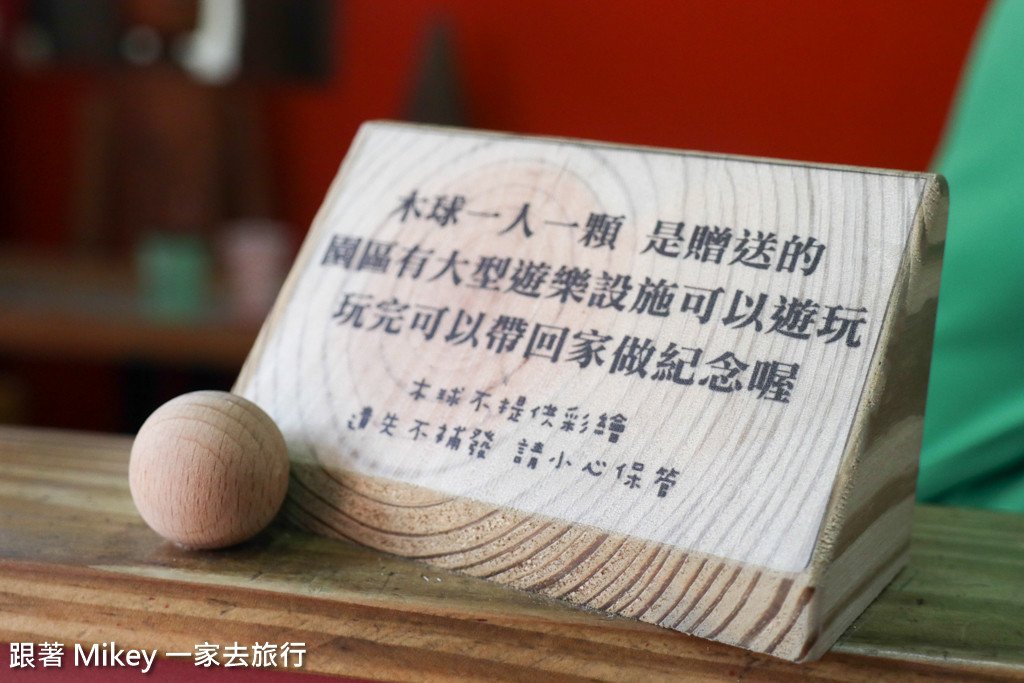 木球一人一顆 是贈送的
園區有大型遊樂設施可以遊玩
玩完可以帶回家做紀念喔
木球不提供彩繪
遺失不補發 請小心保管
跟著 Mikey 一家去旅行